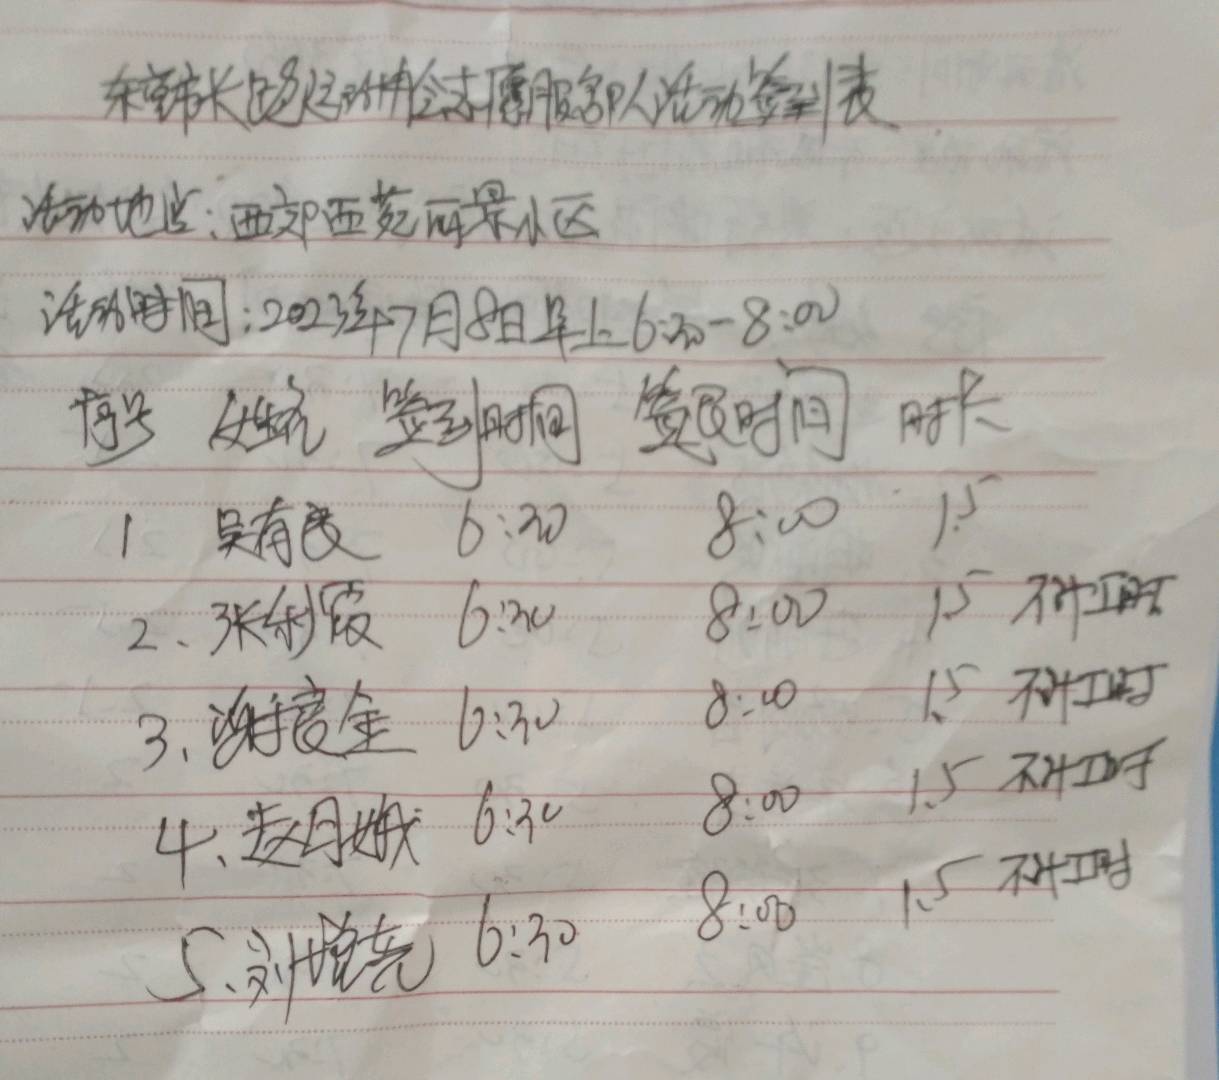 东莞市长跑运动协会志愿服务队活动签到表
活动地点：西郊西苑丽景小区
活动时间：2023年7月8日早上6:30-8:00
序号 姓名 签到时间 签退时间 时长
1 吴有良 6:30 8:00 1.5
2、张利霞 6:30 8:00 1.5 不计工时
3、谢金 6:30 8:00 1.5 不计工时
4、赵月娥 6:30 8:00 1.5 不计工时
5、刘增亮 6:30 8:00 1.5 不计工时